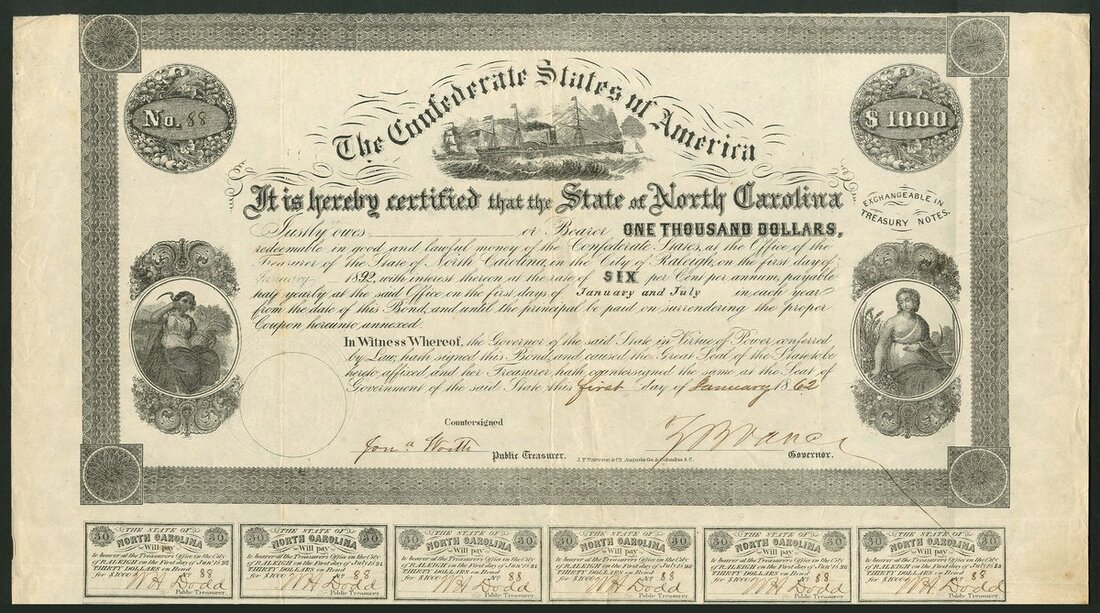 The Confederate States of America
No. 88
$1000
It is hereby certified that the State of North Carolina
EXCHANGEABLE IN
TREASURY NOTES.
Justly owes or Bearer ONE THOUSAND DOLLARS,
redeemable in good and lawful money of the Confederate States, at the Office of the
Treasurer of the State of North Carolina, in the City of Raleigh, on the first day of
January 1892, with interest thereon at the rate of SIX per Cent per annum, payable
half yearly at the said Office, on the first days of January and July in each year
from the date of this Bond, and until the principal be paid on surrendering the proper
Coupon hereunto annexed.
In Witness Whereof, the Governor of the said State in Virtue of Power conferred
by Law, hath signed this Bond, and caused the Great Seal of the State to be
hereto affixed and her Treasurer hath countersigned the same at the Seat of
Government of the said State this first day of January 1862
Countersigned
Jona Worth Public Treasurer.
J. T. Paterson & Co. Augusta, Ga. & Columbia S.C.
Z B Vance Governor.
30 THE STATE OF 30
NORTH CAROLINA
Will pay
to bearer at the Treasurers Office in the City
of RALEIGH on the First day of Jan'y
THIRTY DOLLARS on Bond
for $1000 No 88
W H Dodd
Public Treasurer.
30 THE STATE OF 30
NORTH CAROLINA
Will pay
to bearer at the Treasurers Office in the City
of RALEIGH on the First day of July
THIRTY DOLLARS on Bond
for $1000 No 88
W H Dodd
Public Treasurer.
30 THE STATE OF 30
NORTH CAROLINA
Will pay
to bearer at the Treasurers Office in the City
of RALEIGH on the First day of Jan'y
THIRTY DOLLARS on Bond
for $1000 No 88
W H Dodd
Public Treasurer.
30 THE STATE OF 30
NORTH CAROLINA
Will pay
to bearer at the Treasurers Office in the City
of RALEIGH on the First day of July
THIRTY DOLLARS on Bond
for $1000 No 88
W H Dodd
Public Treasurer.
30 THE STATE OF 30
NORTH CAROLINA
Will pay
to bearer at the Treasurers Office in the City
of RALEIGH on the First day of Jan'y
THIRTY DOLLARS on Bond
for $1000 No 88
W H Dodd
Public Treasurer.
30 THE STATE OF 30
NORTH CAROLINA
Will pay
to bearer at the Treasurers Office in the City
of RALEIGH on the First day of July
THIRTY DOLLARS on Bond
for $1000 No 88
W H Dodd
Public Treasurer.